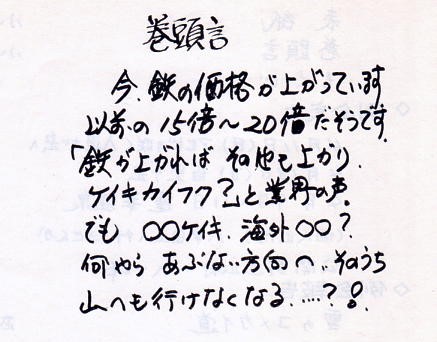 巻頭言
今、鉄の価格が上がっています
以前の15倍〜20倍だそうです。
「鉄が上がれば その他も上がり、
ケイキカイフク?」と業界の声。
でも 〇〇ケイキ、海外〇〇?
何やら あぶない方向へ、そのうち
山へも行けなくなる……?!